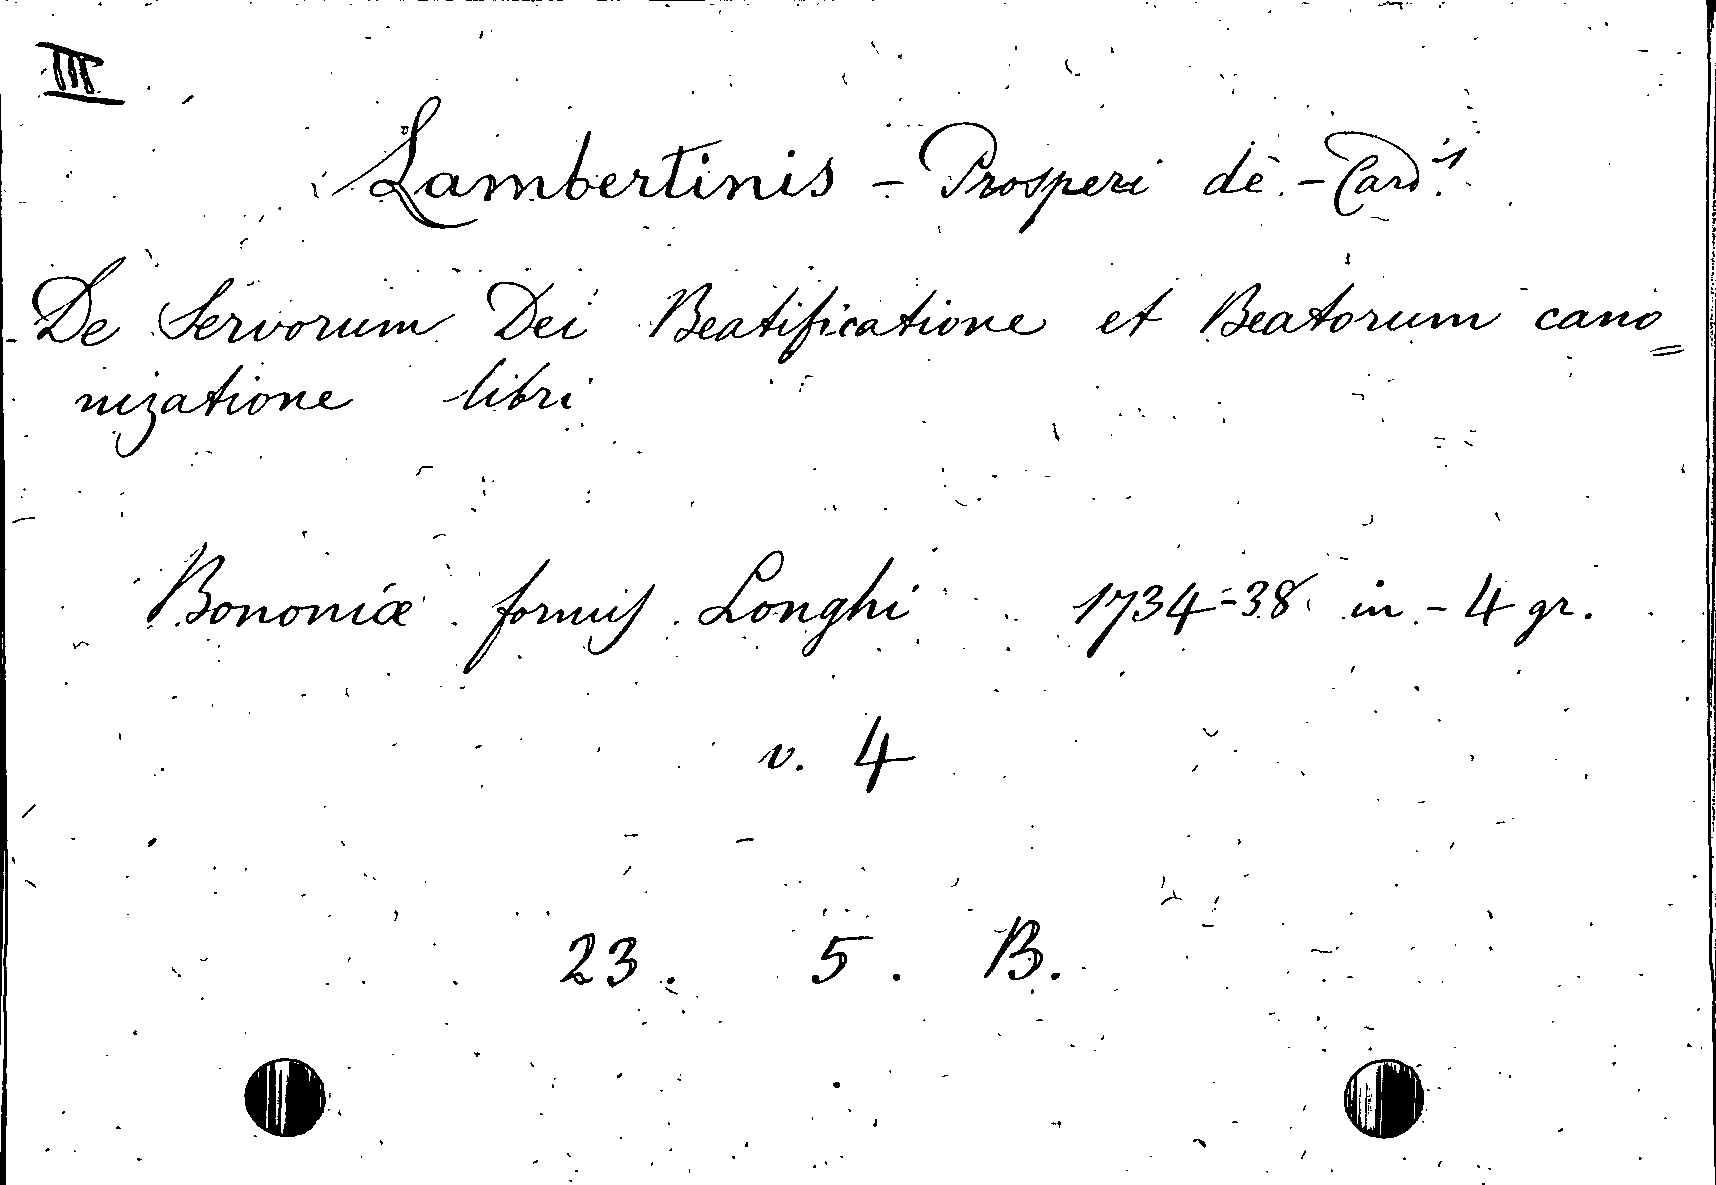 III
Lambertinis - Prosperi de - Card.is
De Servorum Dei Beatificatione et Beatorum cano=
nizatione libri
Bononiæ formis Longhi 1734-38 in-4 gr.
v. 4
23. 5. B.